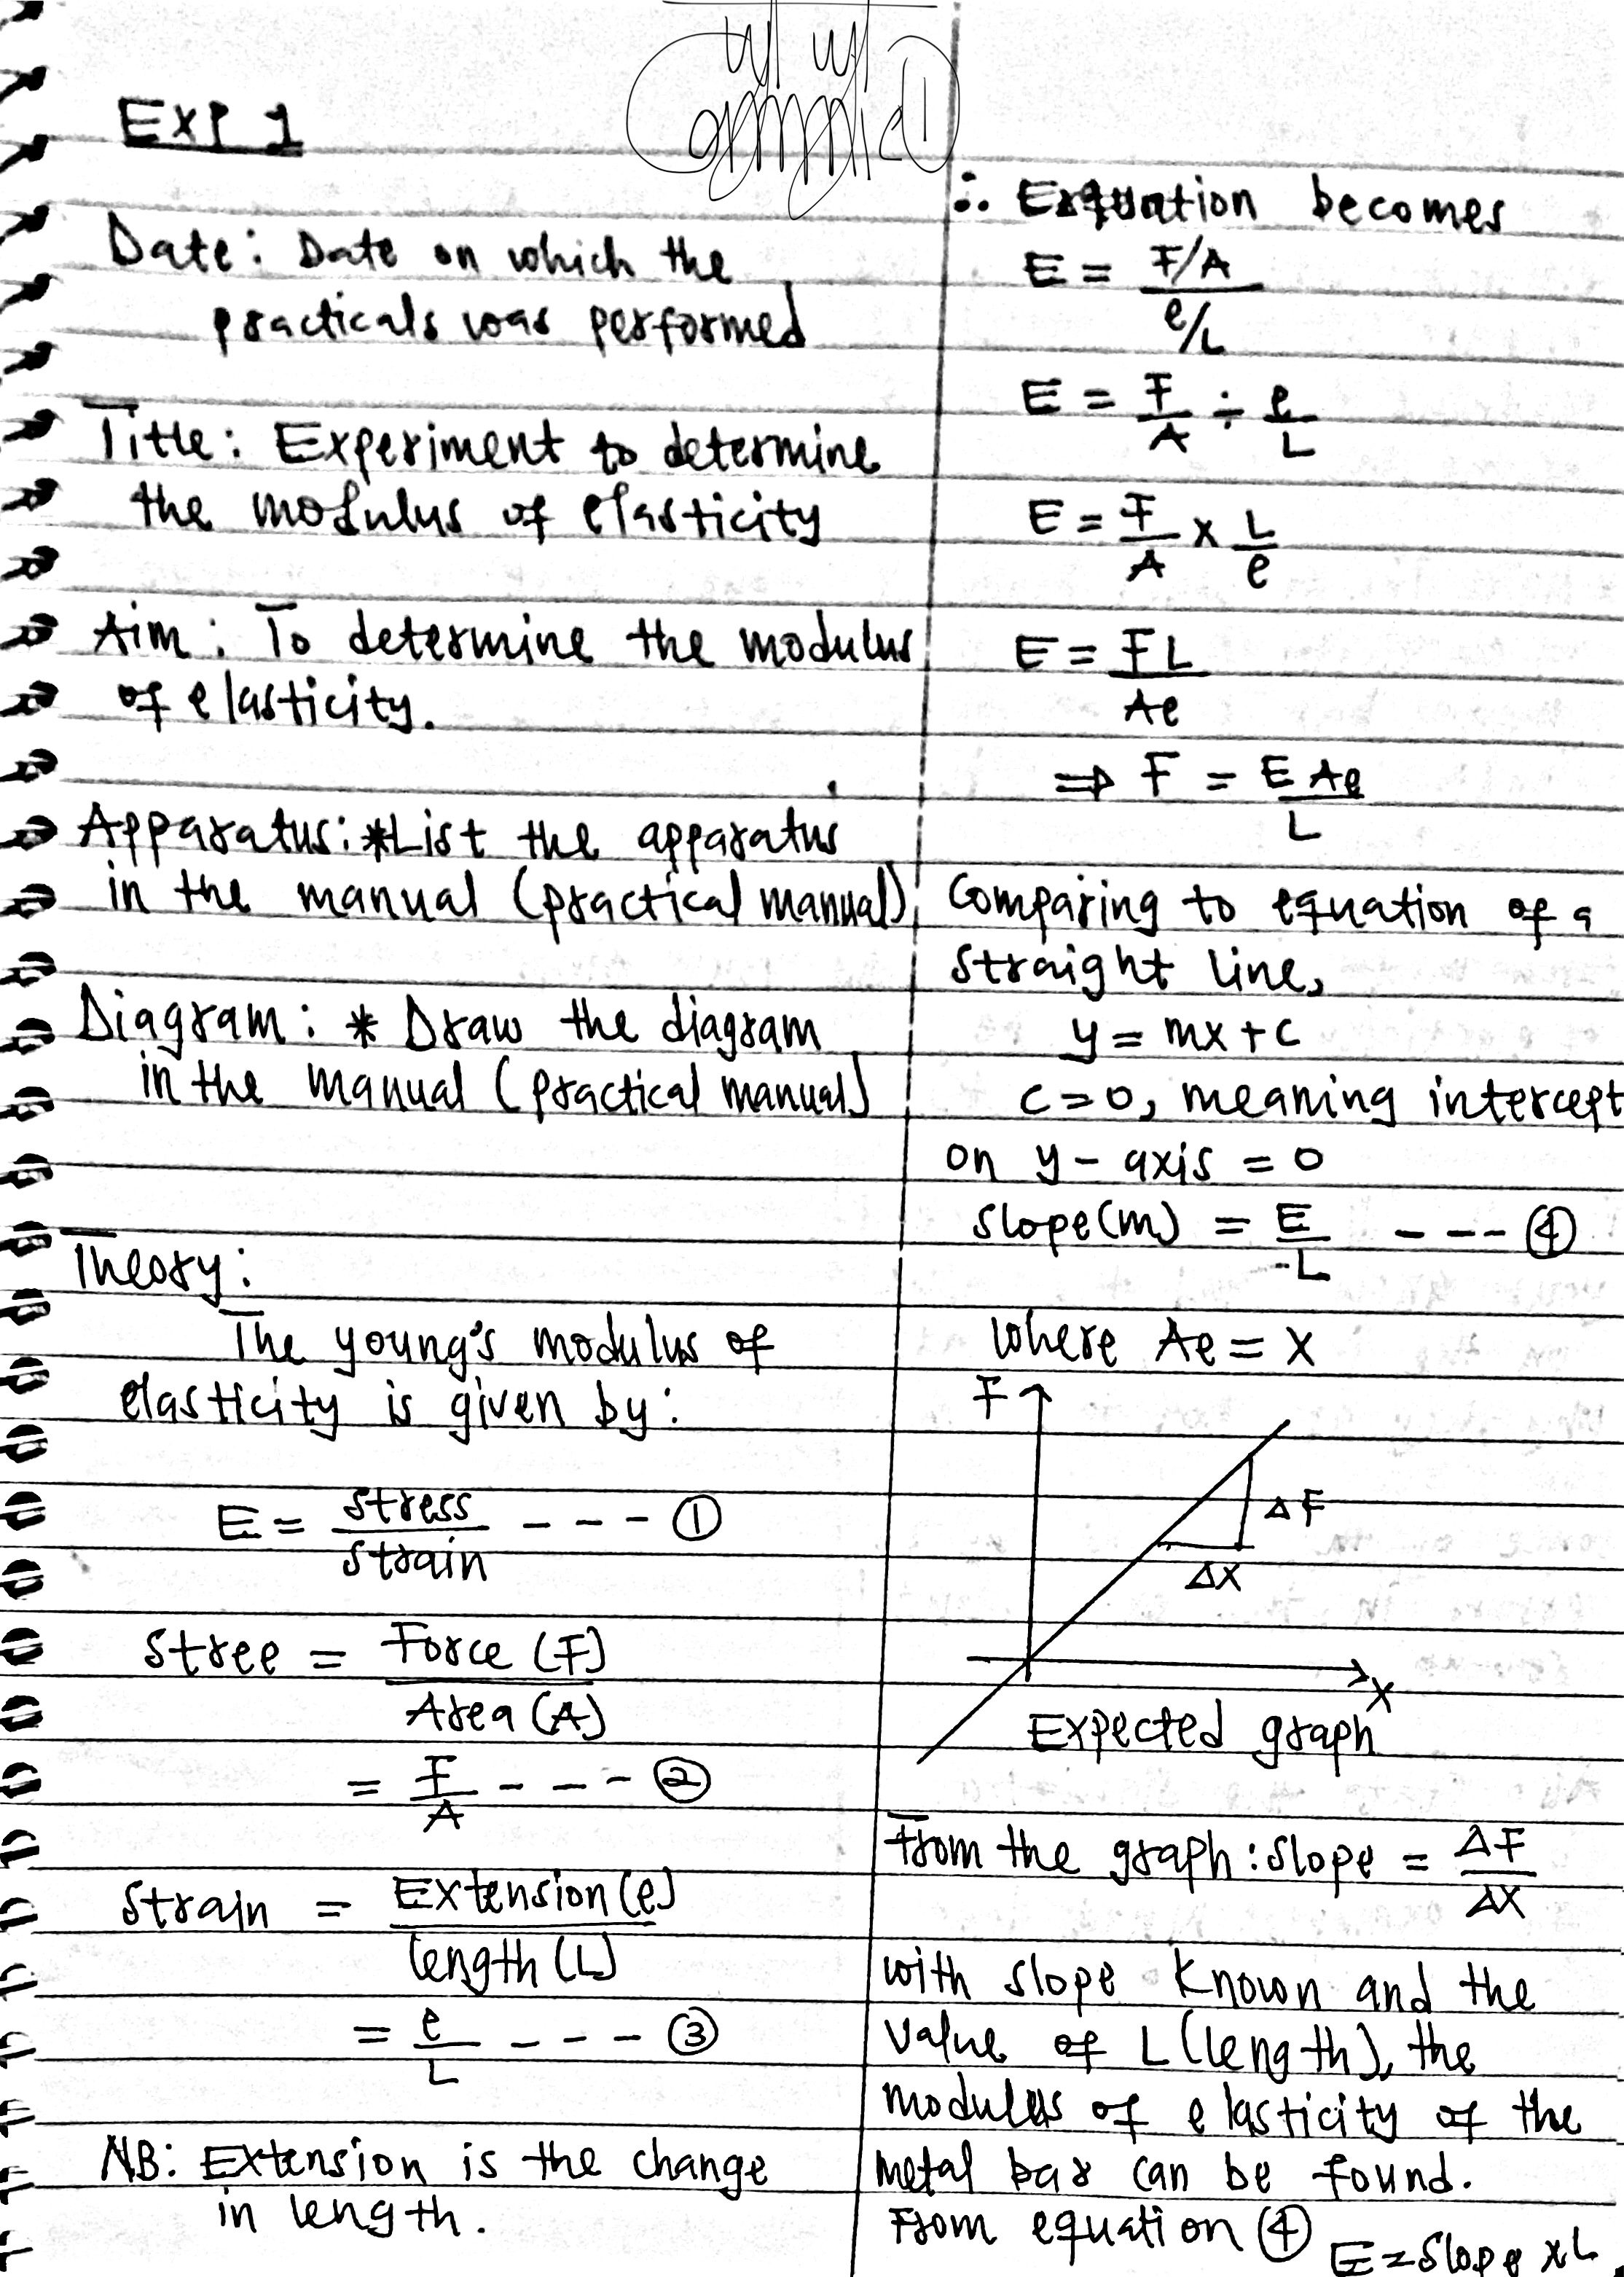 EXP 1
Date: Date on which the
practicals was performed
Title: Experiment to determine
the modulus of elasticity
Aim: To determine the modulus
of elasticity.
Apparatus: *List the apparatus
in the manual (practical manual)
Diagram: * Draw the diagram
in the manual (practical manual)
Theory:
The young's modulus of
elasticity is given by:
E = stress/strain - - - ①
stree = Force (F)/Area (A)
= F/A - - - ②
strain = Extension (e)/length (L)
= e/L - - - ③
NB: Extension is the change
in length.
∴ Equation becomes
E = F/A / e/L
E = F/A ÷ e/L
E = F/A x L/e
E = FL/Ae
⇒ F = E Ae/L
Comparing to equation of a
straight line,
y = mx + c
c = 0, meaning intercept
on y-axis = 0
slope(m) = E/L - - - ④
where Ae = x
F
ΔF
Δx
x
Expected graph
From the graph: slope = ΔF/Δx
with slope known and the
value of L (length), the
modulus of elasticity of the
metal bar can be found.
From equation ④ E = slope x L